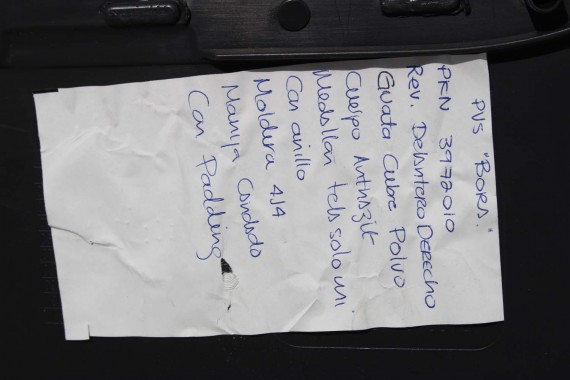 PVS "BORA."
PKN 3972010
Rev. Delantero DERECHO
Guata Cubre Polvo
Cuerpo Anthrazit
Medallon tela solouni
Con anillo
Moldura 4J4
Manija Candado
Con Padding